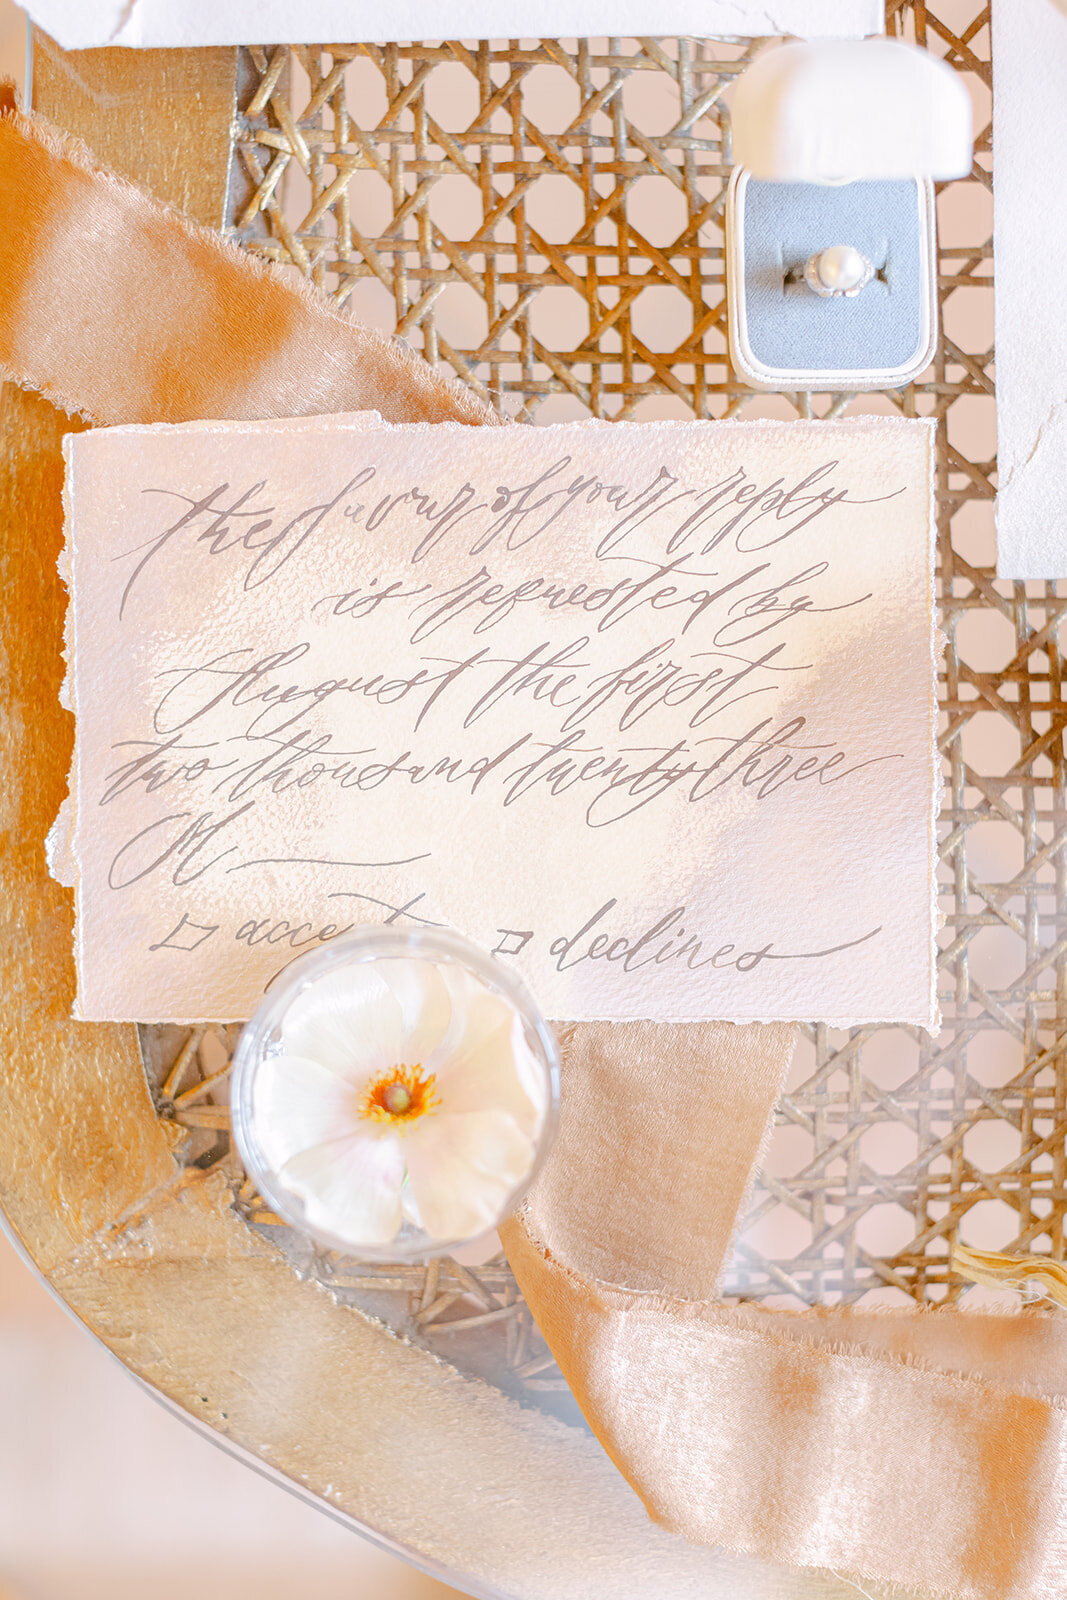 the favur of your reply
is requested by
August the first
two thousand twenty three
M
accept
declines